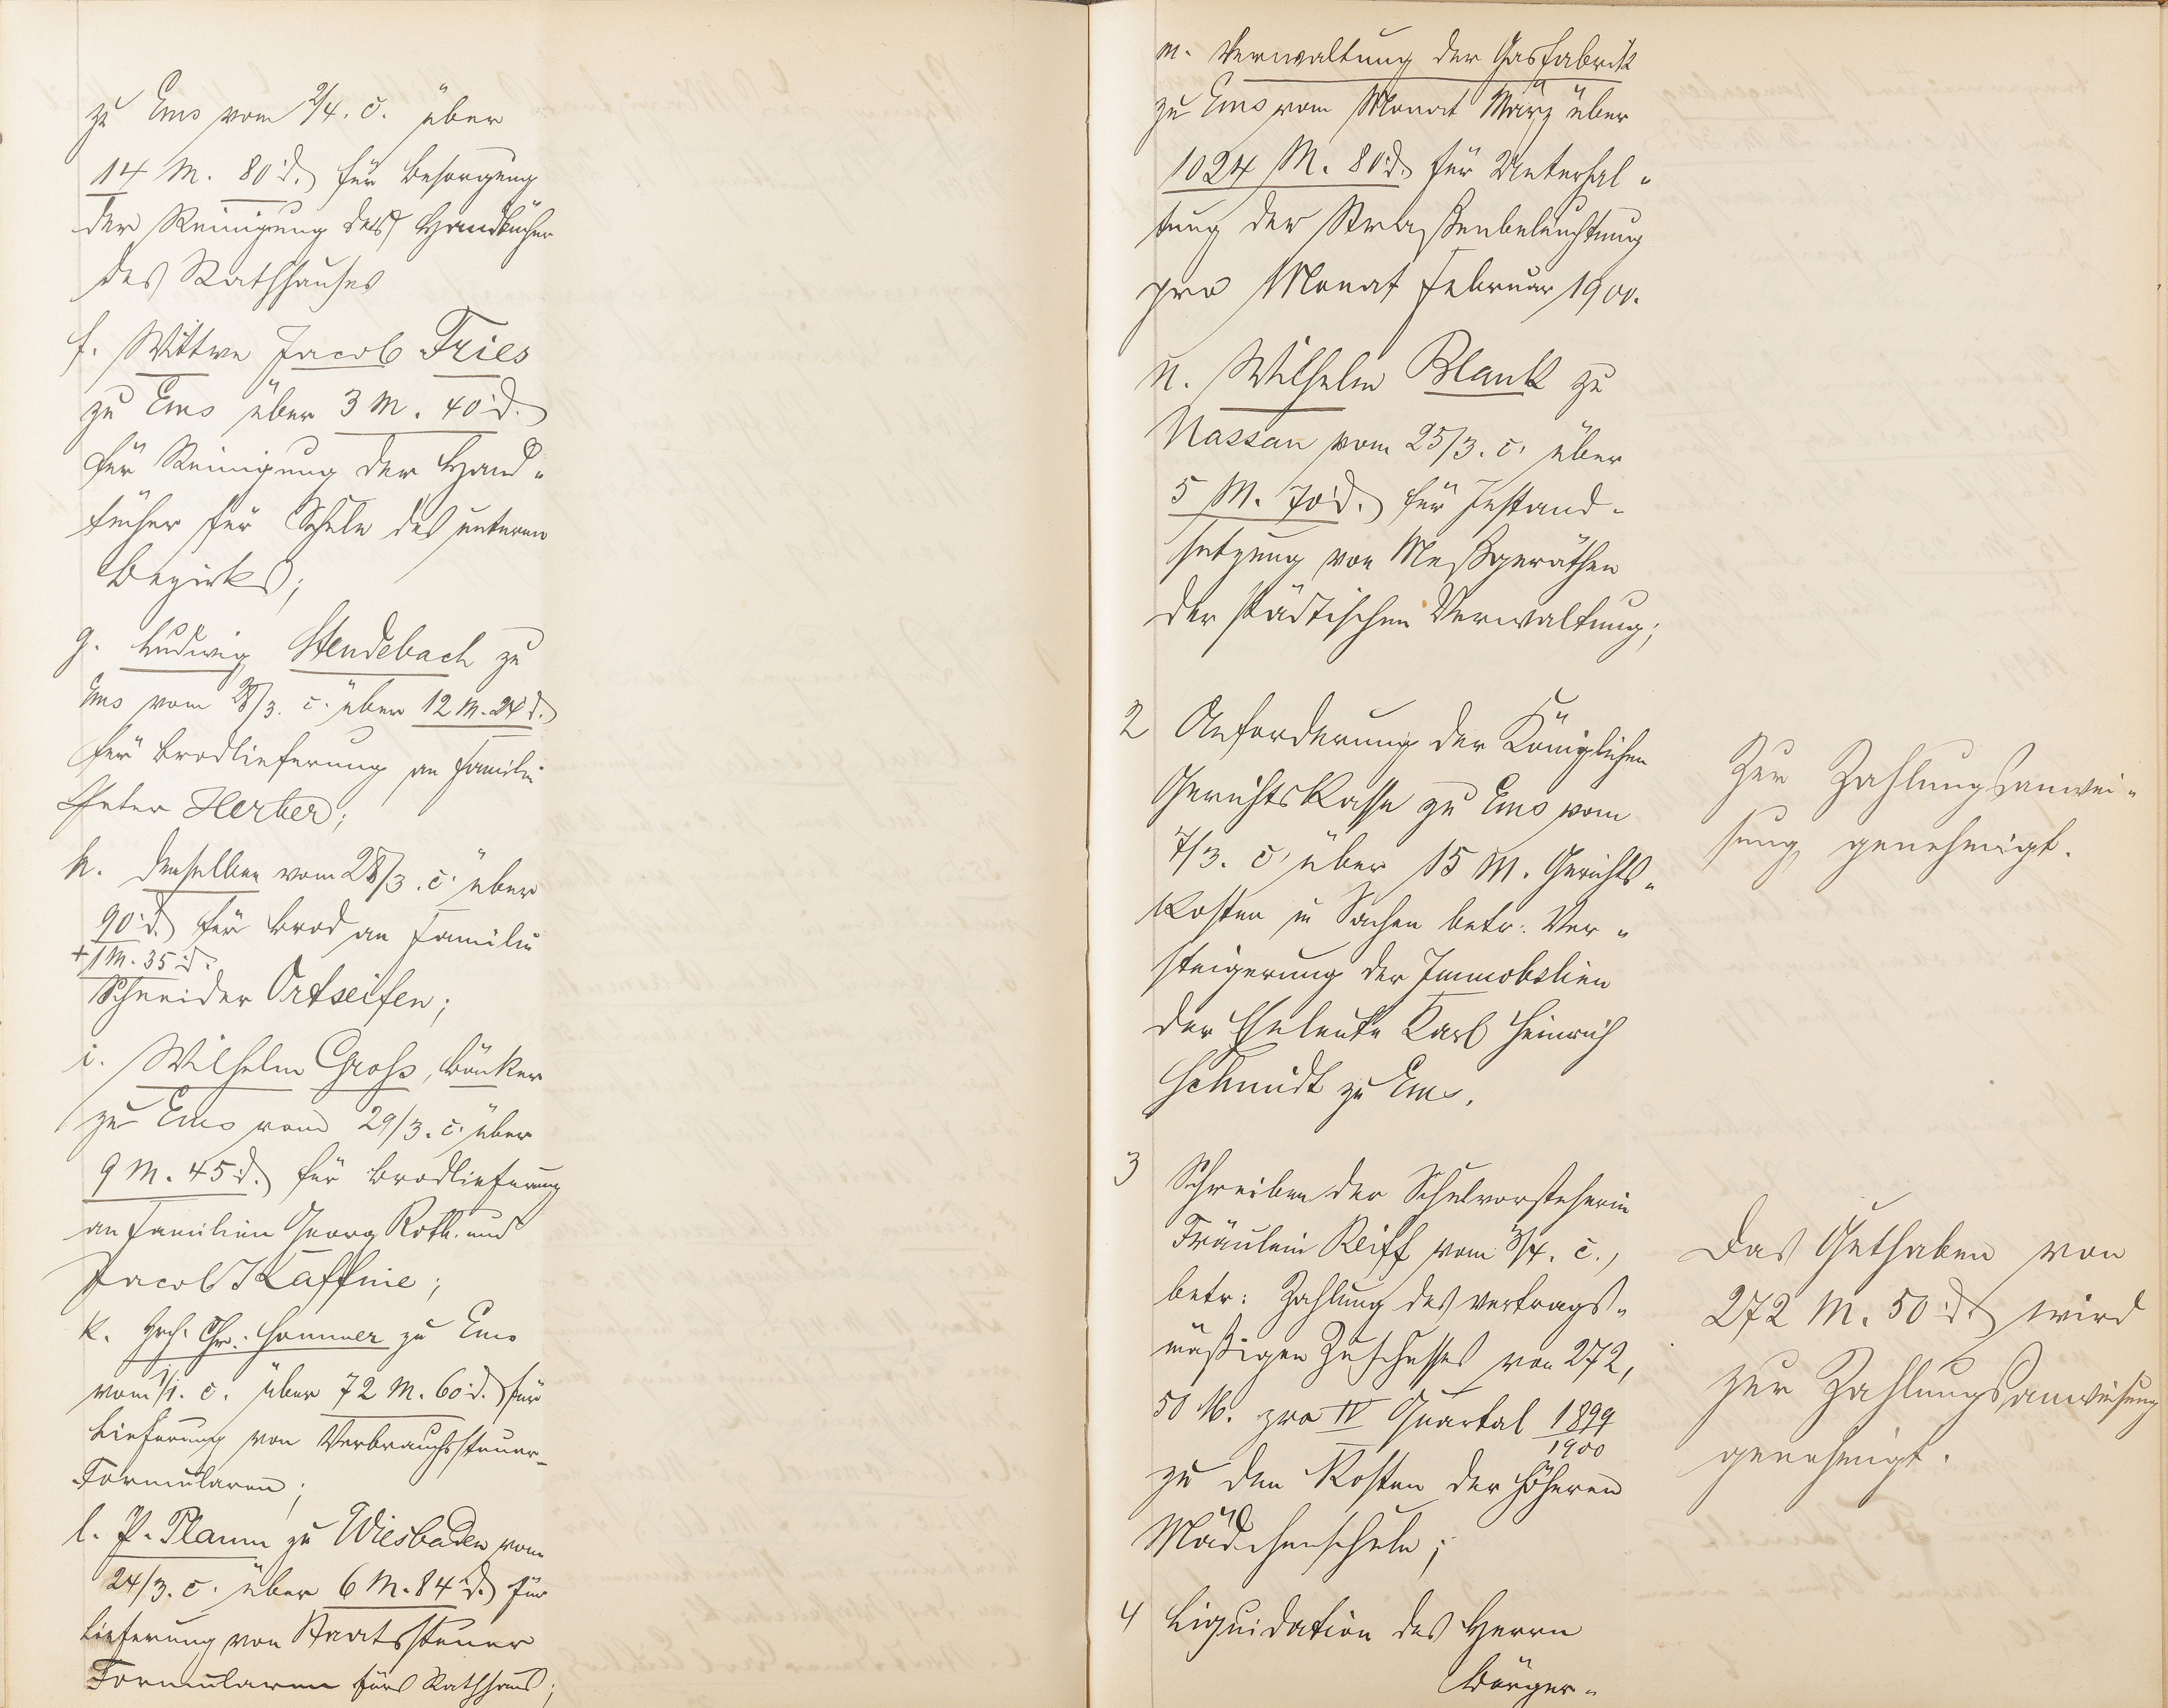 zu Ems vom 2/4. c. über
14 M. 80 d. für Besorgung
der Reinigung der Handtücher
des Rathhauses
f. Wittwe Jacob Fries
zu Ems über 3 M. 40 d.
für Reinigung der Hand-
tücher für Schule des unteren
Bezirks;
g. Ludwig Stendebach zu
Ems vom 28/3. c. über 12 M. 24 d.
für Brodlieferung an Familie
Peter Herber;
h. Denselben vom 28/3. c. über
90 d. für Brod an Familie
+ 1 M. 35 d.
Schneider Ortseifen;
i. Wilhelm Groß, Bäcker
zu Ems vom 29/3. c. über
9 M. 45 d. für Brodlieferung
an Familien Georg Roth und
Jacob Kaffine;
k. Hch. Chr. Sommer zu Ems
vom 1/1. c. über 72 M. 60 d. für
Lieferung von Verbrauchssteuer-
Formularen;
l. P. Plaum zu Wiesbaden vom
24/3. c. über 6 M. 84 d. für
Lieferung von Staatssteuer
Formularen fürs Rathhaus;
m. Verwaltung der Gasfabrik
zu Ems vom Monat März über
1024 M. 80 d. für Unterhal-
tung der Straßenbeleuchtung
pro Monat Februar 1900.
n. Wilhelm Blank zu
Nassau vom 25/3. c. über
5 M. 70 d. für Instand-
setzung von Meßgeräthen
der städtischen Verwaltung;
2 Anforderung der Königlichen
Gerichtskasse zu Ems vom
7/3. c. über 15 M. Gerichts-
Kosten in Sachen betr. Ver-
steigerung der Immobilien
der Eheleute Karl Heinrich
Schmidt zu Ems.
Zur Zahlungsanwei-
sung genehmigt.
3 Schreiben der Schulvorsteherin
Fräulein Reiff vom 3/4. c.,
betr: Zahlung des vertrags-
mäßigen Zuschusses von 272,
50 M. pro IV Quartal 1899
1900
zu den Kosten der höheren
Mädchenschule;
Das Guthaben von
272 M. 50 d. wird
zur Zahlungsanweisung
genehmigt.
4 Liquidation des Herrn
Bürger-